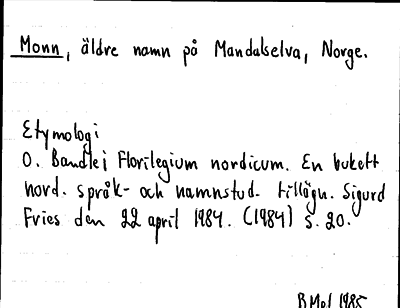 Monn, äldre namn på Mandalselva, Norge.
Etymologi
O. Bandle i Florilegium nordicum. En bukett
nord. språk- och namnstud. tillägn. Sigurd
Fries den 22 april 1984. (1984) s. 20.
BMol 1985